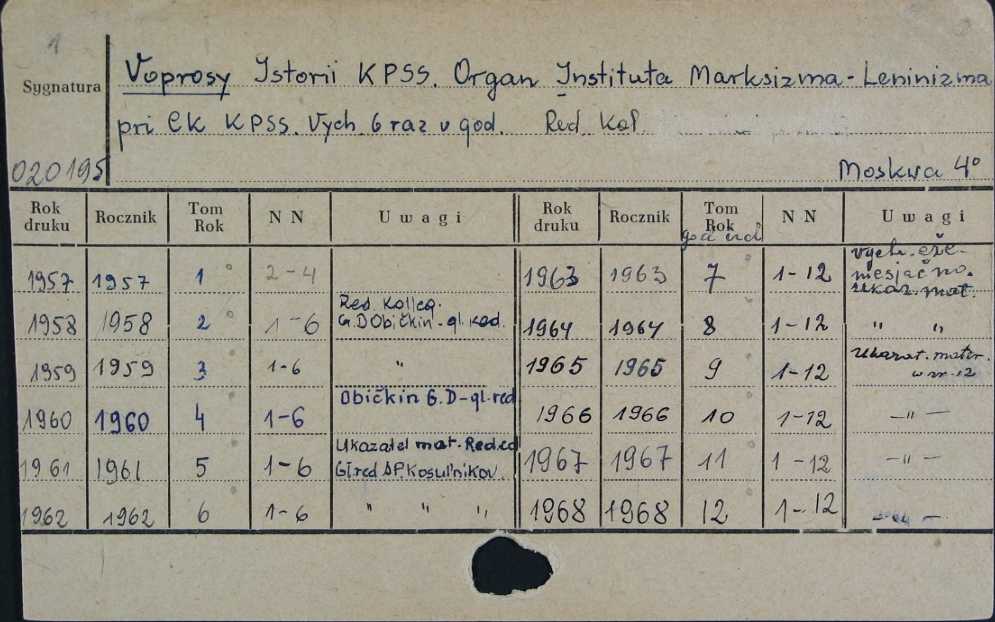 1
Sygnatura
Voprosy Istorii KPSS. Organ Instituta Marksizma-Leninizma
pri CK KPSS. Vych. 6 raz v god. Red. Kol.
020195
Moskva 4°
Rok druku Rocznik Tom Rok NN Uwagi Rok druku Rocznik Tom Rok NN Uwagi
1957 1957 1 2-4 1963 1963 7 1-12 vych. eže-
mesjačno.
Ukaz. mat.
1958 1958 2 1-6 Red. Kolleg. 1964 1964 8 1-12 " "
G.D Običkin - gl. red.
1959 1959 3 1-6 " 1965 1965 9 1-12 Ukazat. mater.
w nr. 12
1960 1960 4 1-6 Običkin G.D - gl. red 1966 1966 10 1-12 -"-
1961 1961 5 1-6 Ukazatel mat. Red. 1967 1967 11 1-12 -"-
Gl. red
1962 1962 6 1-6 " " " 1968 1968 12 1-12